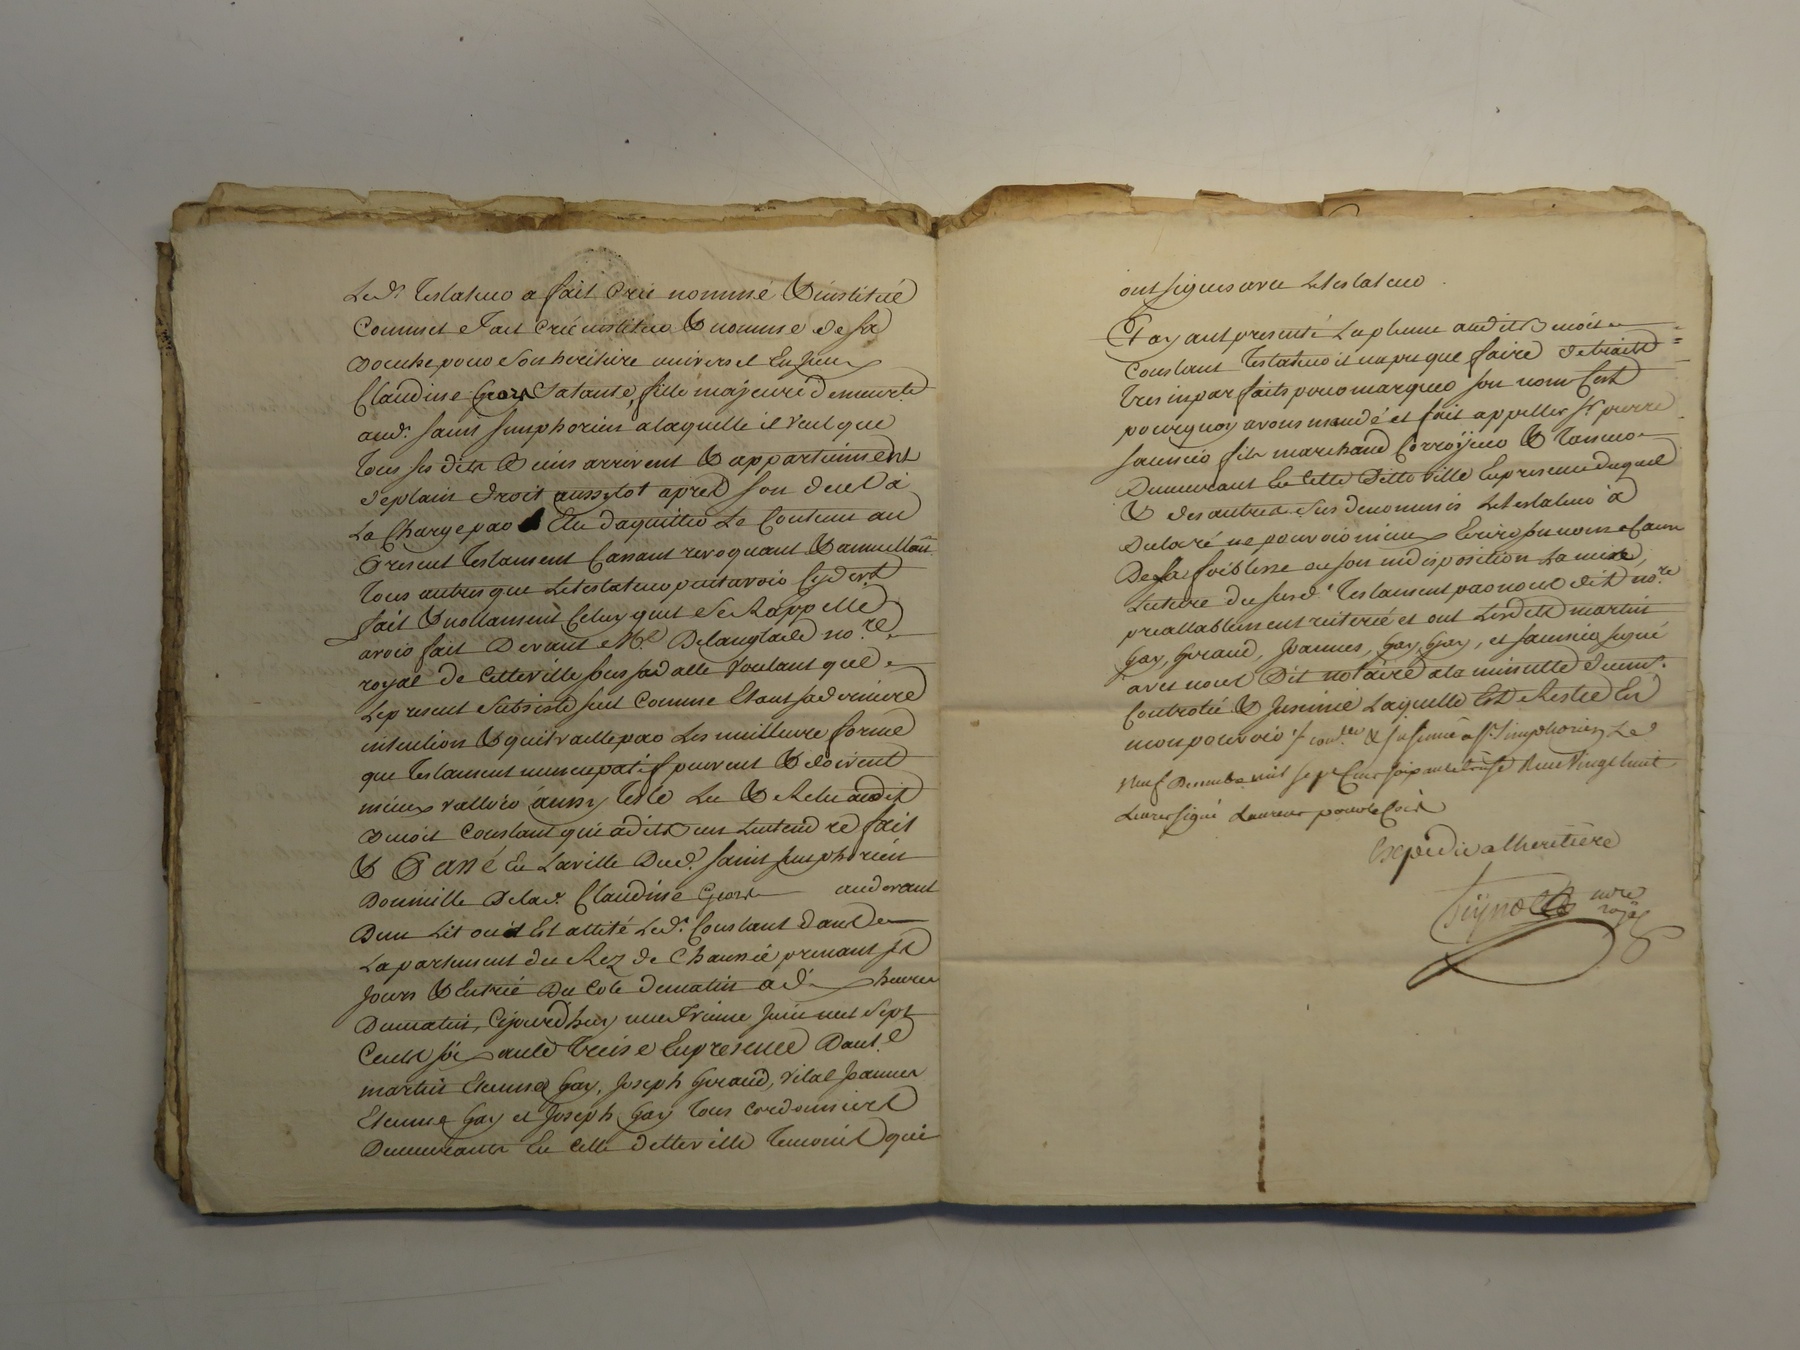 Led.t testateur a fait créé nommé & institué
Comme il fait créé institue & nomme de sa
Bouche pour Son heritiere universelle
Claudine Sa tante, fille majeure demeurte
aud. saint simphorien a laquelle il veut que
tous ses dits Biens arrivent & appartiennent
de plain droit aussytot apres son deces a
La Charge par Elle daquitter Le Contenu au
Present testament Cassant revoquant & annullant
tous autres que Le testateur peut avoir cy devt
fait & nottament Celuy quil se Rappelle
avoir fait Devant Me Delanglade no.re
royal de Cette ville sous sa datte voulant que
Le present Subsiste seul Comme Etant sa derniere
intention & quil vaille par Les meilleure forme
que testament nuncupatif peuvent & doivent
mieux valloir aussy teste Lu & Relu audit
Benoit Constant qui a dit bien Lentendre fait
& Passé En La ville Dud. saint simphorien
Domicille De lad. Claudine au devant
Dun Lit ou Est allité Led. Constant dans
La partement du Rez de Chaussée prenant ses
jours & Entrée Du Coté de matin a dix heures
Du matin, Cejourdhuy unze Juin mil Sept
Cents soixante treize En presence De
martin Etienne Gay, Joseph Giraud, vital Joannes
Etienne Gay et Joseph Gay tous cordonniers
Demeurants En Cette ditte ville temoins qui
ont signés avec Le testateur.
Et ayant presenté La plume audit Benoit
Constant testateur il na pu que faire de traits
tres inparfaits pour marquer son nom Cest
pourquoy avons mandé et fait appeller Sr pierre
saunier fils marchand Corroyeur & tanneur
Demeurant En Cette Ditte ville En presence duquel
& des autres Sus denommés Le testateur a
Declaré ne pouvoir mieux Ecrire son nom a Cause
De sa foiblesse ou son indisposition La mise,
Lecture du susd. testament par nous dit no.re
preallablement reiterée et ont Lesdits martin
Gay, Giraud, Joannes, Gay, Gay, et saunier signé
avec nous Dit notaire a la minutte Duement
Controllé & Insinué Laquelle Est Restée En
mon pouvoir / & Insinué a St. Simphorien Le
neuf Decembre mil sept Cens soixante treise Reçu vingt huit
Livres signé Laurens pour le Cois
Expedié a lheritière
no.re
royal